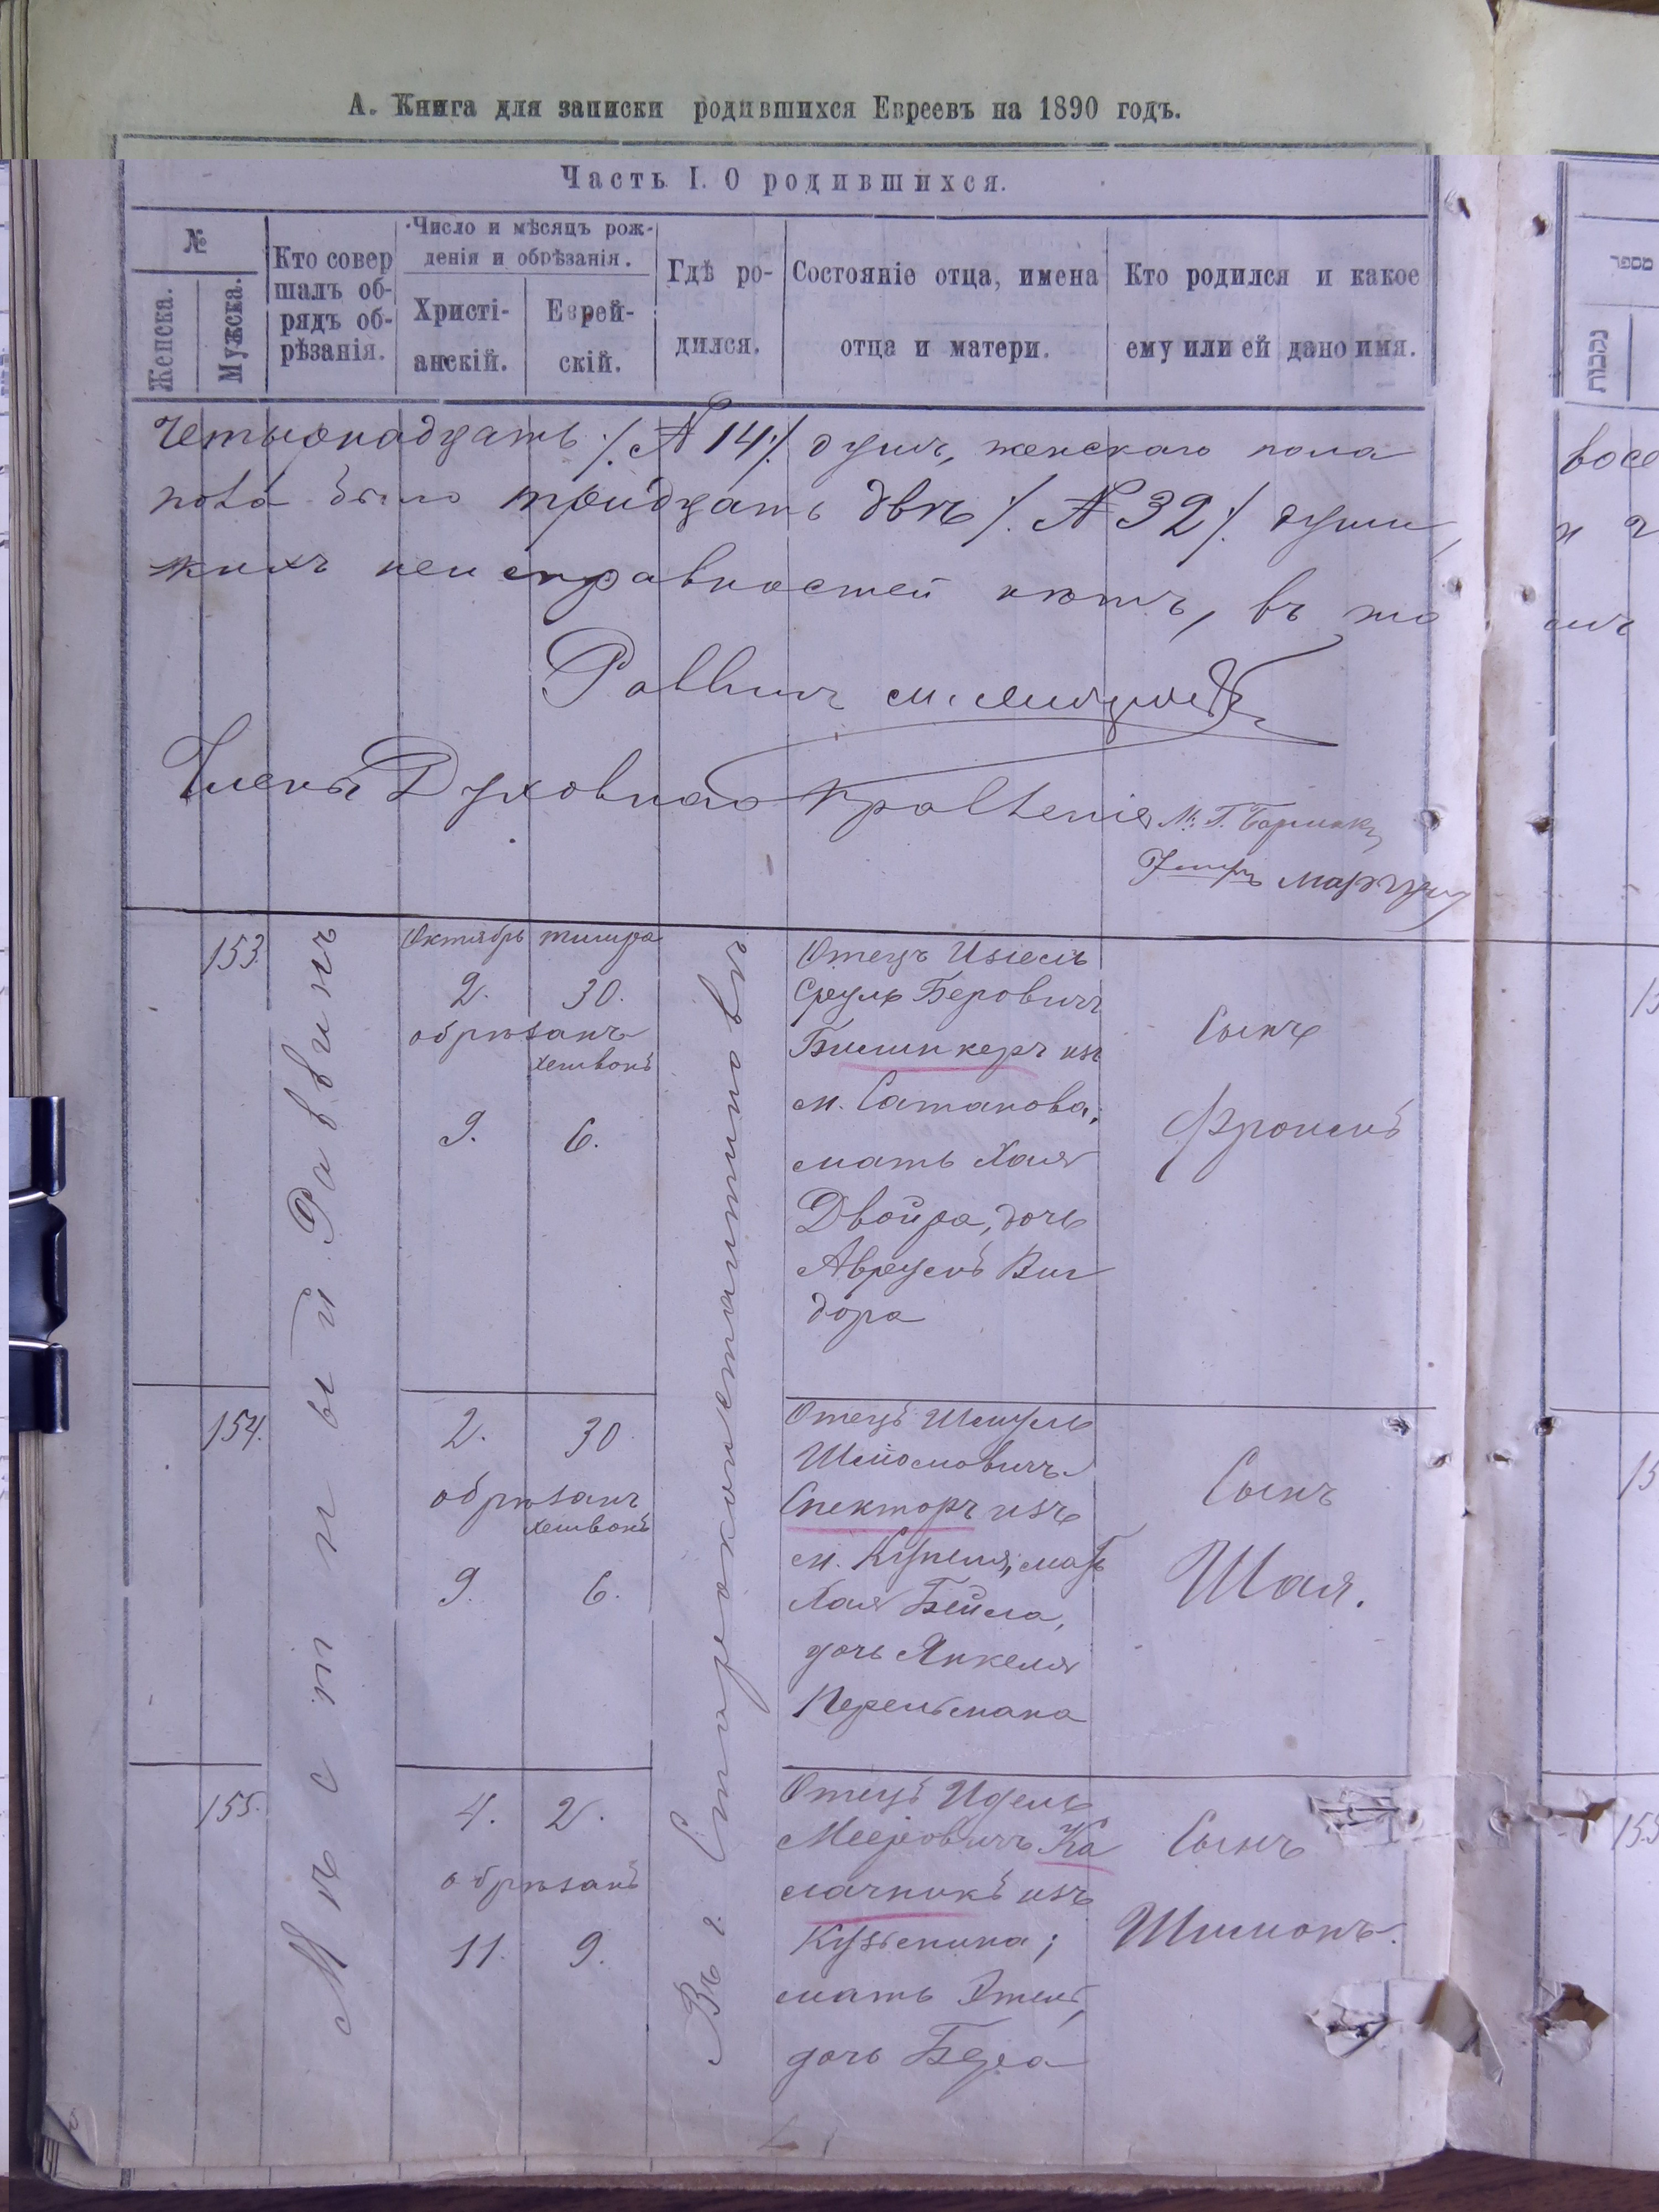 А. Книга для записки родившихся Евреевъ на 1890 годъ.
Часть I. О родившихся.
№
Женска.
Мужска.
Кто совер
шалъ об-
рядъ об-
рѣзанія.
Число и мѣсяцъ рож-
денія и обрѣзанія.
Христі-
анскій.
Еврей-
скій.
Гдѣ ро-
дился.
Состояніе отца, имена
отца и матери.
Кто родился и какое
ему или ей дано имя.
מספר
נקבות
четырнадцать ·/. № 14 ·/. душъ, женскаго пола
пола было тридцать двѣ ·/. № 32 ·/. души,
кихъ неисправностей нѣтъ, въ то
Раввинъ М.
Члены Духовнаго Правленія М. Г.
153.
Мѣстный Раввинъ
Октябрь тишра
2. 30.
обрѣзанъ
хешвонъ
9. 6.
Въ г. Староконстантиновѣ
Отецъ
Сруль Беровичъ
изъ
м. Сатанова;
мать Хая
Двойра, дочь
Авр
дора
Сынъ
Фроимъ
154.
2. 30
обрѣзанъ
хешвонъ
9. 6.
Отецъ Шмуль
Шлиомовичъ
Спекторъ изъ
м. Купеля, мать
Хая Бейла,
дочь Янкеля
Перельмана
Сынъ
Шая.
155.
4. 2.
обрѣзанъ
11. 9.
Отецъ Идель
Мееровичъ Ка
лачникъ изъ
Кузьмина;
мать
дочь Бера
Сынъ
Шимонъ.
155